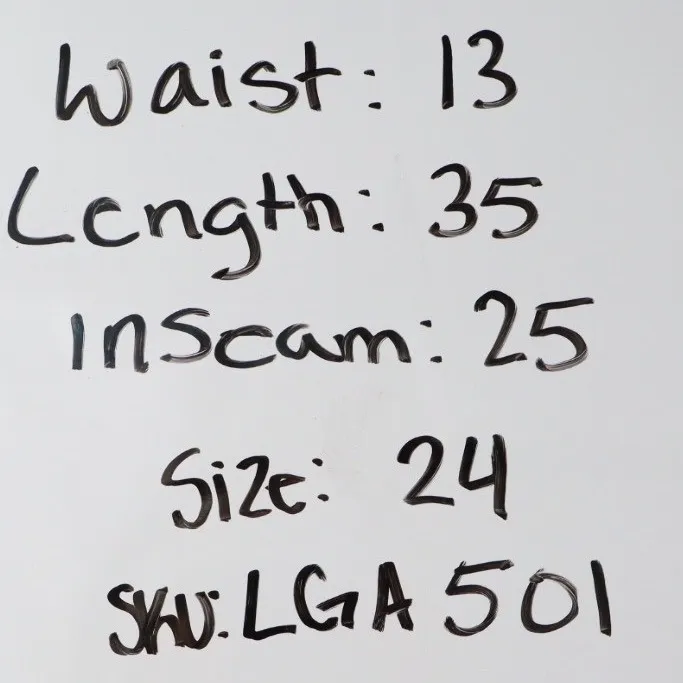 Waist: 13
Length: 35
Inseam: 25
Size: 24
SKU: LGA 501